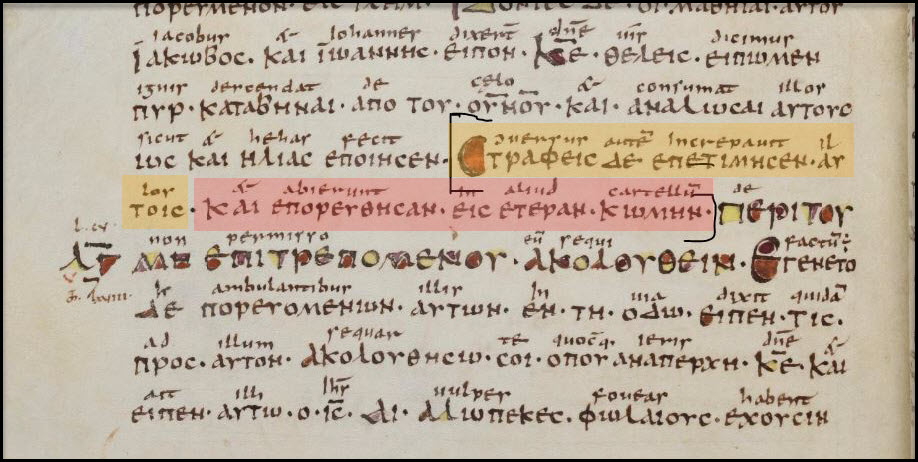 ΙΔΟΝΤΕΣ ΔΕ· ΟΙ ΜΑΘΗΤΑΙ· ΑΥΤΟΥ
iacobus & iohannes dixerūt dn̄e uis dicimus
ΙΑΚΩΒΟΣ· ΚΑΙ ΙΩΑΝΝΗΣ· ΕΙΠΟΝ· Κ̅Ε̅· ΘΕΛΕΙΣ· ΕΙΠΩΜΕΝ
ignis descendat de celo & consumat illos
ΠΥΡ· ΚΑΤΑΒΗΝΑΙ· ΑΠΟ ΤΟΥ· ΟΥ̅Ν̅Ο̅Υ̅· ΚΑΙ· ΑΝΑΛΩΣΑΙ ΑΥΤΟΥΣ
sicut & helias fecit onuersus autē increpauit il
ΩΣ ΚΑΙ ΗΛΙΑΣ ΕΠΟΙΗΣΕΝ· ΣΤΡΑΦΕΙΣ ΔΕ ΕΠΕΤΙΜΗΣΕΝ· ΑΥ
los & abierunt in aliud castellū de
ΤΟΙΣ· ΚΑΙ ΕΠΟΡΕΥΘΗΣΑΝ· ΕΙΣ ΕΤΕΡΑΝ· ΚΩΜΗΝ· ΠΕΡΙ ΤΟΥ
non permisso eū sequi factū
ΜΗ ΕΠΙΤΡΕΠΟΜΕΝΟΥ· ΑΚΟΛΟΥΘΕΙΝ· ΕΓΕΝΕΤΟ
ambulantibus illis in uia dixit quidā
ΔΕ ΠΟΡΕΥΟΜΕΝΩΝ· ΑΥΤΩΝ· ΕΝ· ΤΗ· ΟΔΩ· ΕΙΠΕΝ· ΤΙΣ·
ad illum sequar te quocūq; ieris dn̄e &
ΠΡΟΣ· ΑΥΤΟΝ· ΑΚΟΛΟΥΘΗΣΩ· ΣΟΙ· ΟΠΟΥ ΑΝ ΑΠΕΡΧΗ· Κ̅Ε̅· ΚΑΙ
ait illi ihs uulpes foueas habent
ΕΙΠΕΝ· ΑΥΤΩ· Ο· Ι̅Σ̅· ΑΙ· ΑΛΩΠΕΚΕΣ· ΦΩΛΑΙΟΥΣ· ΕΧΟΥΣΙΝ